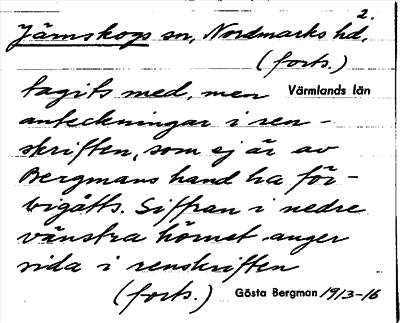 2.
Järnskogs sn, Nordmarks hd.
(forts.)
tagits med, men Värmlands län
anteckningar i ren-
skriften, som ej är av
Bergmans hand ha för-
bigåtts. Siffran i nedre
vänstra hörnet anger
sida i renskriften
(forts.) Gösta Bergman 1913-16